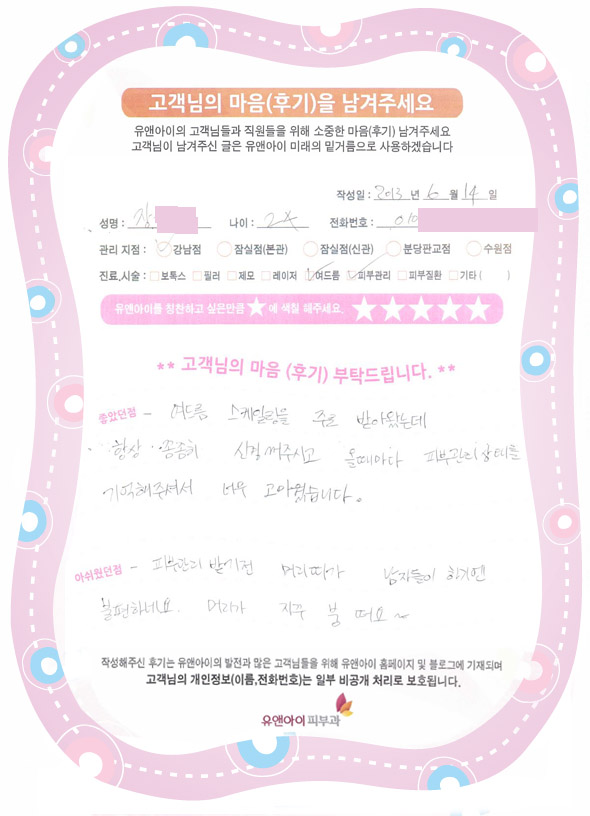 고객님의 마음(후기)을 남겨주세요
유앤아이의 고객님들과 직원들을 위해 소중한 마음(후기) 남겨주세요
고객님이 남겨주신 글은 유앤아이 미래의 밑거름으로 사용하겠습니다
작성일 : 2013 년 6 월 14 일
성명 : 장 나이 : 2x 전화번호 : 010
관리 지점 : 강남점 잠실점(본관) 잠실점(신관) 분당판교점 수원점
진료,시술 : 보톡스 필러 제모 레이저 여드름 피부관리 피부질환 기타 ( )
유앤아이를 칭찬하고 싶은만큼 ★ 에 색칠 해주세요. ★★★★★
** 고객님의 마음 (후기) 부탁드립니다. **
좋았던점 - 여드름 스케일링을 주로 받아왔는데
항상 꼼꼼히 신경써주시고 올때마다 피부관리상태를
기억해주셔서 너무 고마웠습니다.
아쉬웠던점 - 피부관리 받기전 머리띠가 남자들이 하기엔
불편하네요. 머리가 자꾸 붕 떠요~
작성해주신 후기는 유앤아이의 발전과 많은 고객님들을 위해 유앤아이 홈페이지 및 블로그에 기재되며
고객님의 개인정보(이름,전화번호)는 일부 비공개 처리로 보호됩니다.
유앤아이피부과